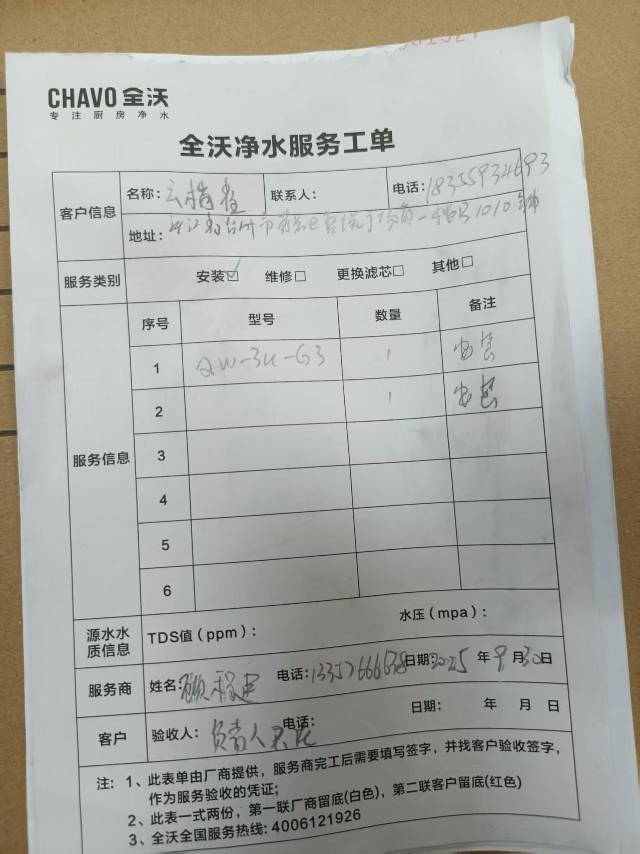 CHAVO 全沃
专注厨房净水
全沃净水服务工单
客户信息 名称: 联系人: 电话: 18355934693
地址: 浙江省台州市黄岩区 1010
服务类别 安装☑ 维修□ 更换滤芯□ 其他□
服务信息 序号 型号 数量 备注
1 QW-3U-G3 1 安装
2 1 安装
3
4
5
6
源水水质信息 TDS值(ppm): 水压(mpa):
服务商 姓名: 电话: 13357666638 日期: 2025年9月30日
客户 验收人: 负责人 电话: 日期: 年 月 日
注: 1、此表单由厂商提供，服务商完工后需要填写签字，并找客户验收签字，
作为服务验收的凭证;
2、此表一式两份，第一联厂商留底(白色)，第二联客户留底(红色)
3、全沃全国服务热线: 4006121926